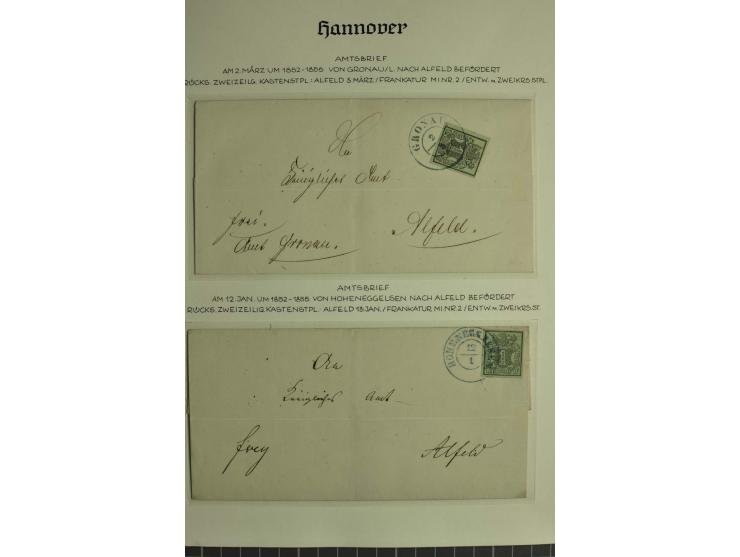 Hannover
AMTSBRIEF
AM 2. MÄRZ UM 1852-1855 VON GRONAU/L. NACH ALFELD BEFÖRDERT
RÜCKS. ZWEIZEILG. KASTENSTPL.: ALFELD 3. MÄRZ / FRANKATUR MI.NR. 2 / ENTW. M. ZWEIKRS.STPL.
GRONAU
2
An
Königliches Amt
frei.
Alfeld.
Amt Gronau.
AMTSBRIEF
AM 12. JAN. UM 1852-1855 VON HOHENEGGELSEN NACH ALFELD BEFÖRDERT
RÜCKS. ZWEIZEILIG. KASTENSTPL.: ALFELD 13. JAN. / FRANKATUR MI.NR. 2 / ENTW. M. ZWEIKRS.ST.
12
1
1
An
Königliches Amt
frey
Alfeld